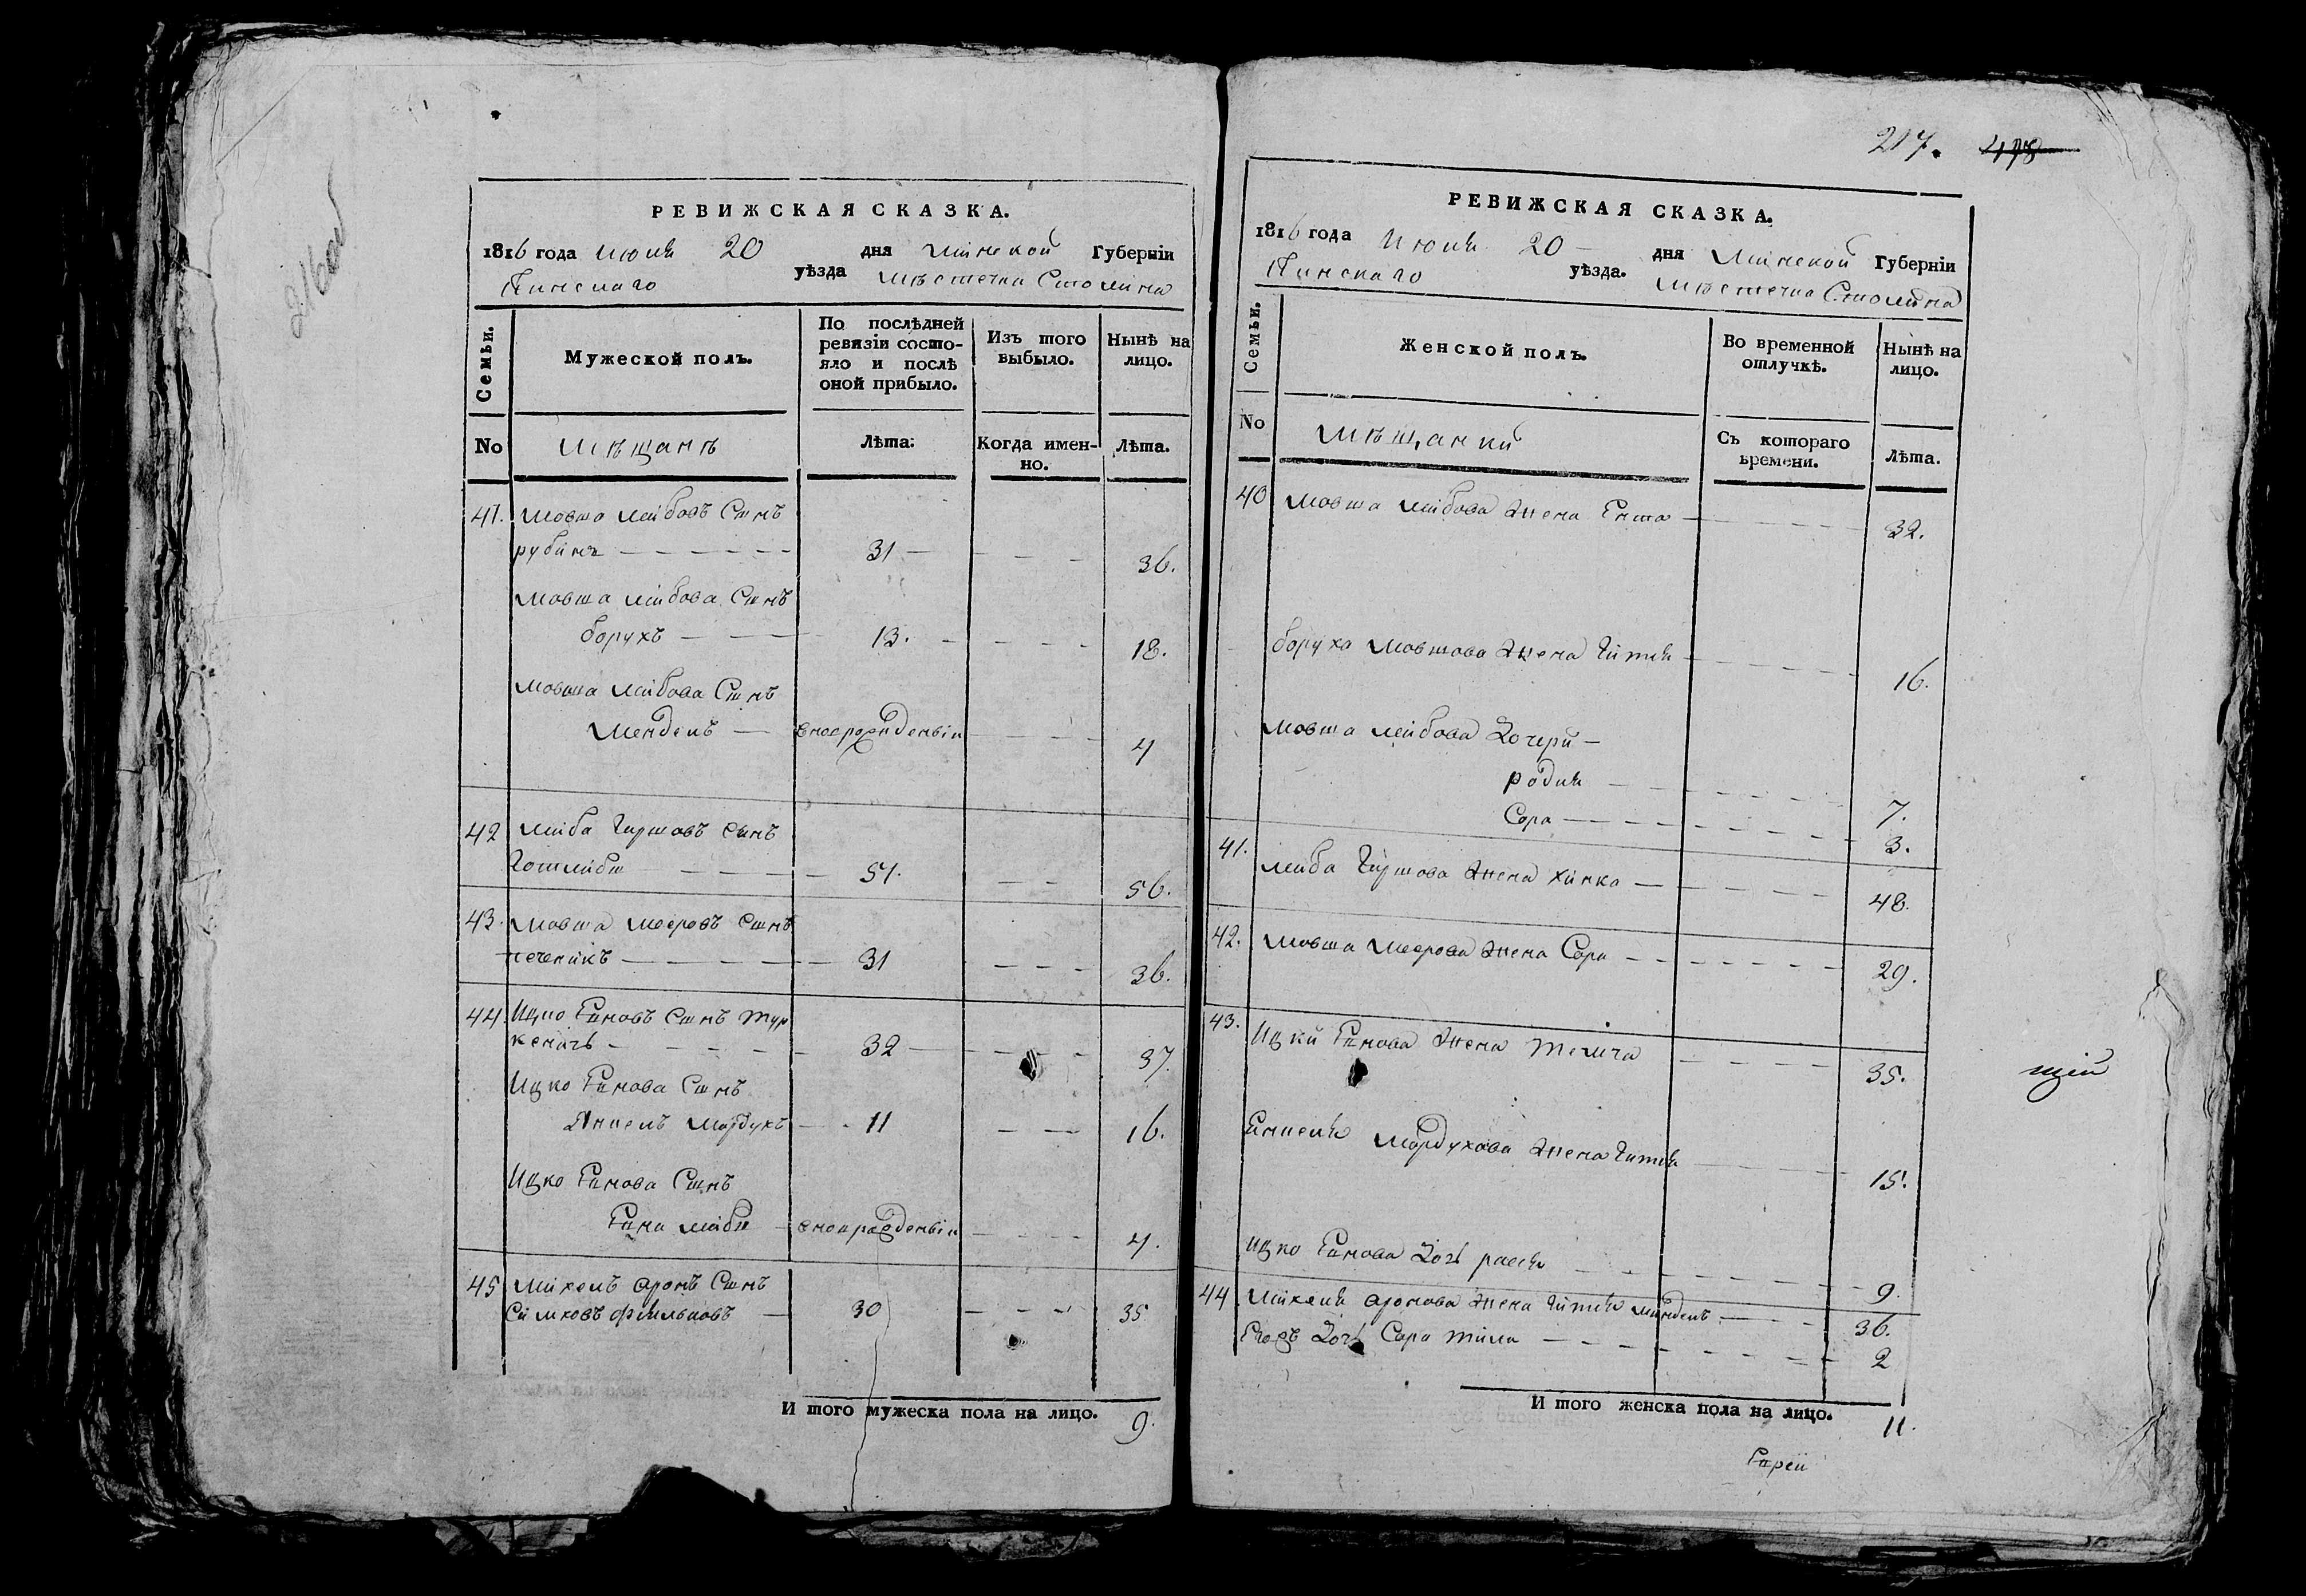 217. 478
РЕВИЖСКАЯ СКАЗКА.
1816 года Июня 20 дня Минской Губерніи
Пинскаго уѣзда мѣстечка Столина
Семьи.
Мужеской полъ.
По послѣдней ревизіи состояло и послѣ оной прибыло.
Изъ того выбыло.
Нынѣ на лицо.
No мѣщанъ Лѣта: Когда имен- Лѣта.
но.
41. Мовша Лейбовъ Сынъ
рубинъ 31 36.
Мовша Лейбова Сынъ
борухъ 13. 18.
Мовша Лейбова Сынъ
Мендель 4
42 Лейба Гиршовъ Сынъ
Готлибъ 51. 56.
43. Мовша Мееровъ Сынъ
печеникъ 31 36.
44. Ицко Еиновъ Сынъ Тур
кеничъ 32 37.
Ицко Еинова Сынъ
Янкель Мордухъ 11 16.
Ицко Еинова Сынъ
4.
45 Михель Аронъ Сынъ
30 35
И того мужеска пола на лицо. 9.
РЕВИЖСКАЯ СКАЗКА.
1816 года Июня 20 дня Минской Губерніи
Пинскаго уѣзда. мѣстечка Столина
Семьи.
Женской полъ.
Во временной отлучкѣ.
Нынѣ на лицо.
No мѣщанки Съ котораго Лѣта.
времени.
40 Мовша Лейбова жена Ента 32.
Боруха Мовшова жена Гитля 16.
Мовша Лейбова Дочери
родля 7.
Сора 3.
41. Лейба Гиршова жена Хинка 48.
42. Мовша Меерова жена Сора 29.
43. Ицки Еинова жена 35.
Мордухова жена Гитля 15.
Ицко Еинова Дочь 9.
44. Михеля Аронова жена Гитля 36.
Егожъ Дочь Сора 2
И того женска пола на лицо. 11.